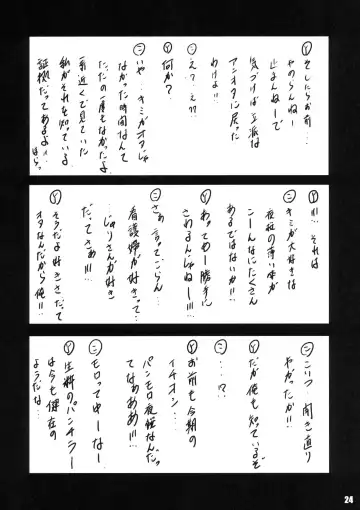 Ⓨ そしたらお前…
やめらんねー
止まんねーで
気づけば立派な
アニオタに戻った
わけよ!!
㋛ え?え??
Ⓨ 何か?
㋛ いや…キミがオタじゃ
なかった時間なんて
ただの一度もなかったよ
一番近くで見ていた
私がそれを知っている
証拠だってあるよ…
Ⓨ !!! それは
㋛ キミが大好きな
夜枝の薄い本が
こーんなにたくさん
あるではないか!!
Ⓨ わってめー勝手に
さわるんじゃねー!!!
㋛ さぁ言ってごらん
看護婦が好きって…
じゅりさんが好き
だってさぁ!!!
Ⓨ そうだよ好きさだって
オタなんだから俺!!
㋛ こいつ…開き直り
やがったか!!
Ⓨ だが俺も知っているぞ
㋛ …?
Ⓨ お前も今期の
イチオシ…
パンモロ夜枝なんだっ
てなぁぁぁ!!!
㋛ モロって中ーなー
Ⓨ 生粋のパンチラー
はらも健在の
ようだな…
24